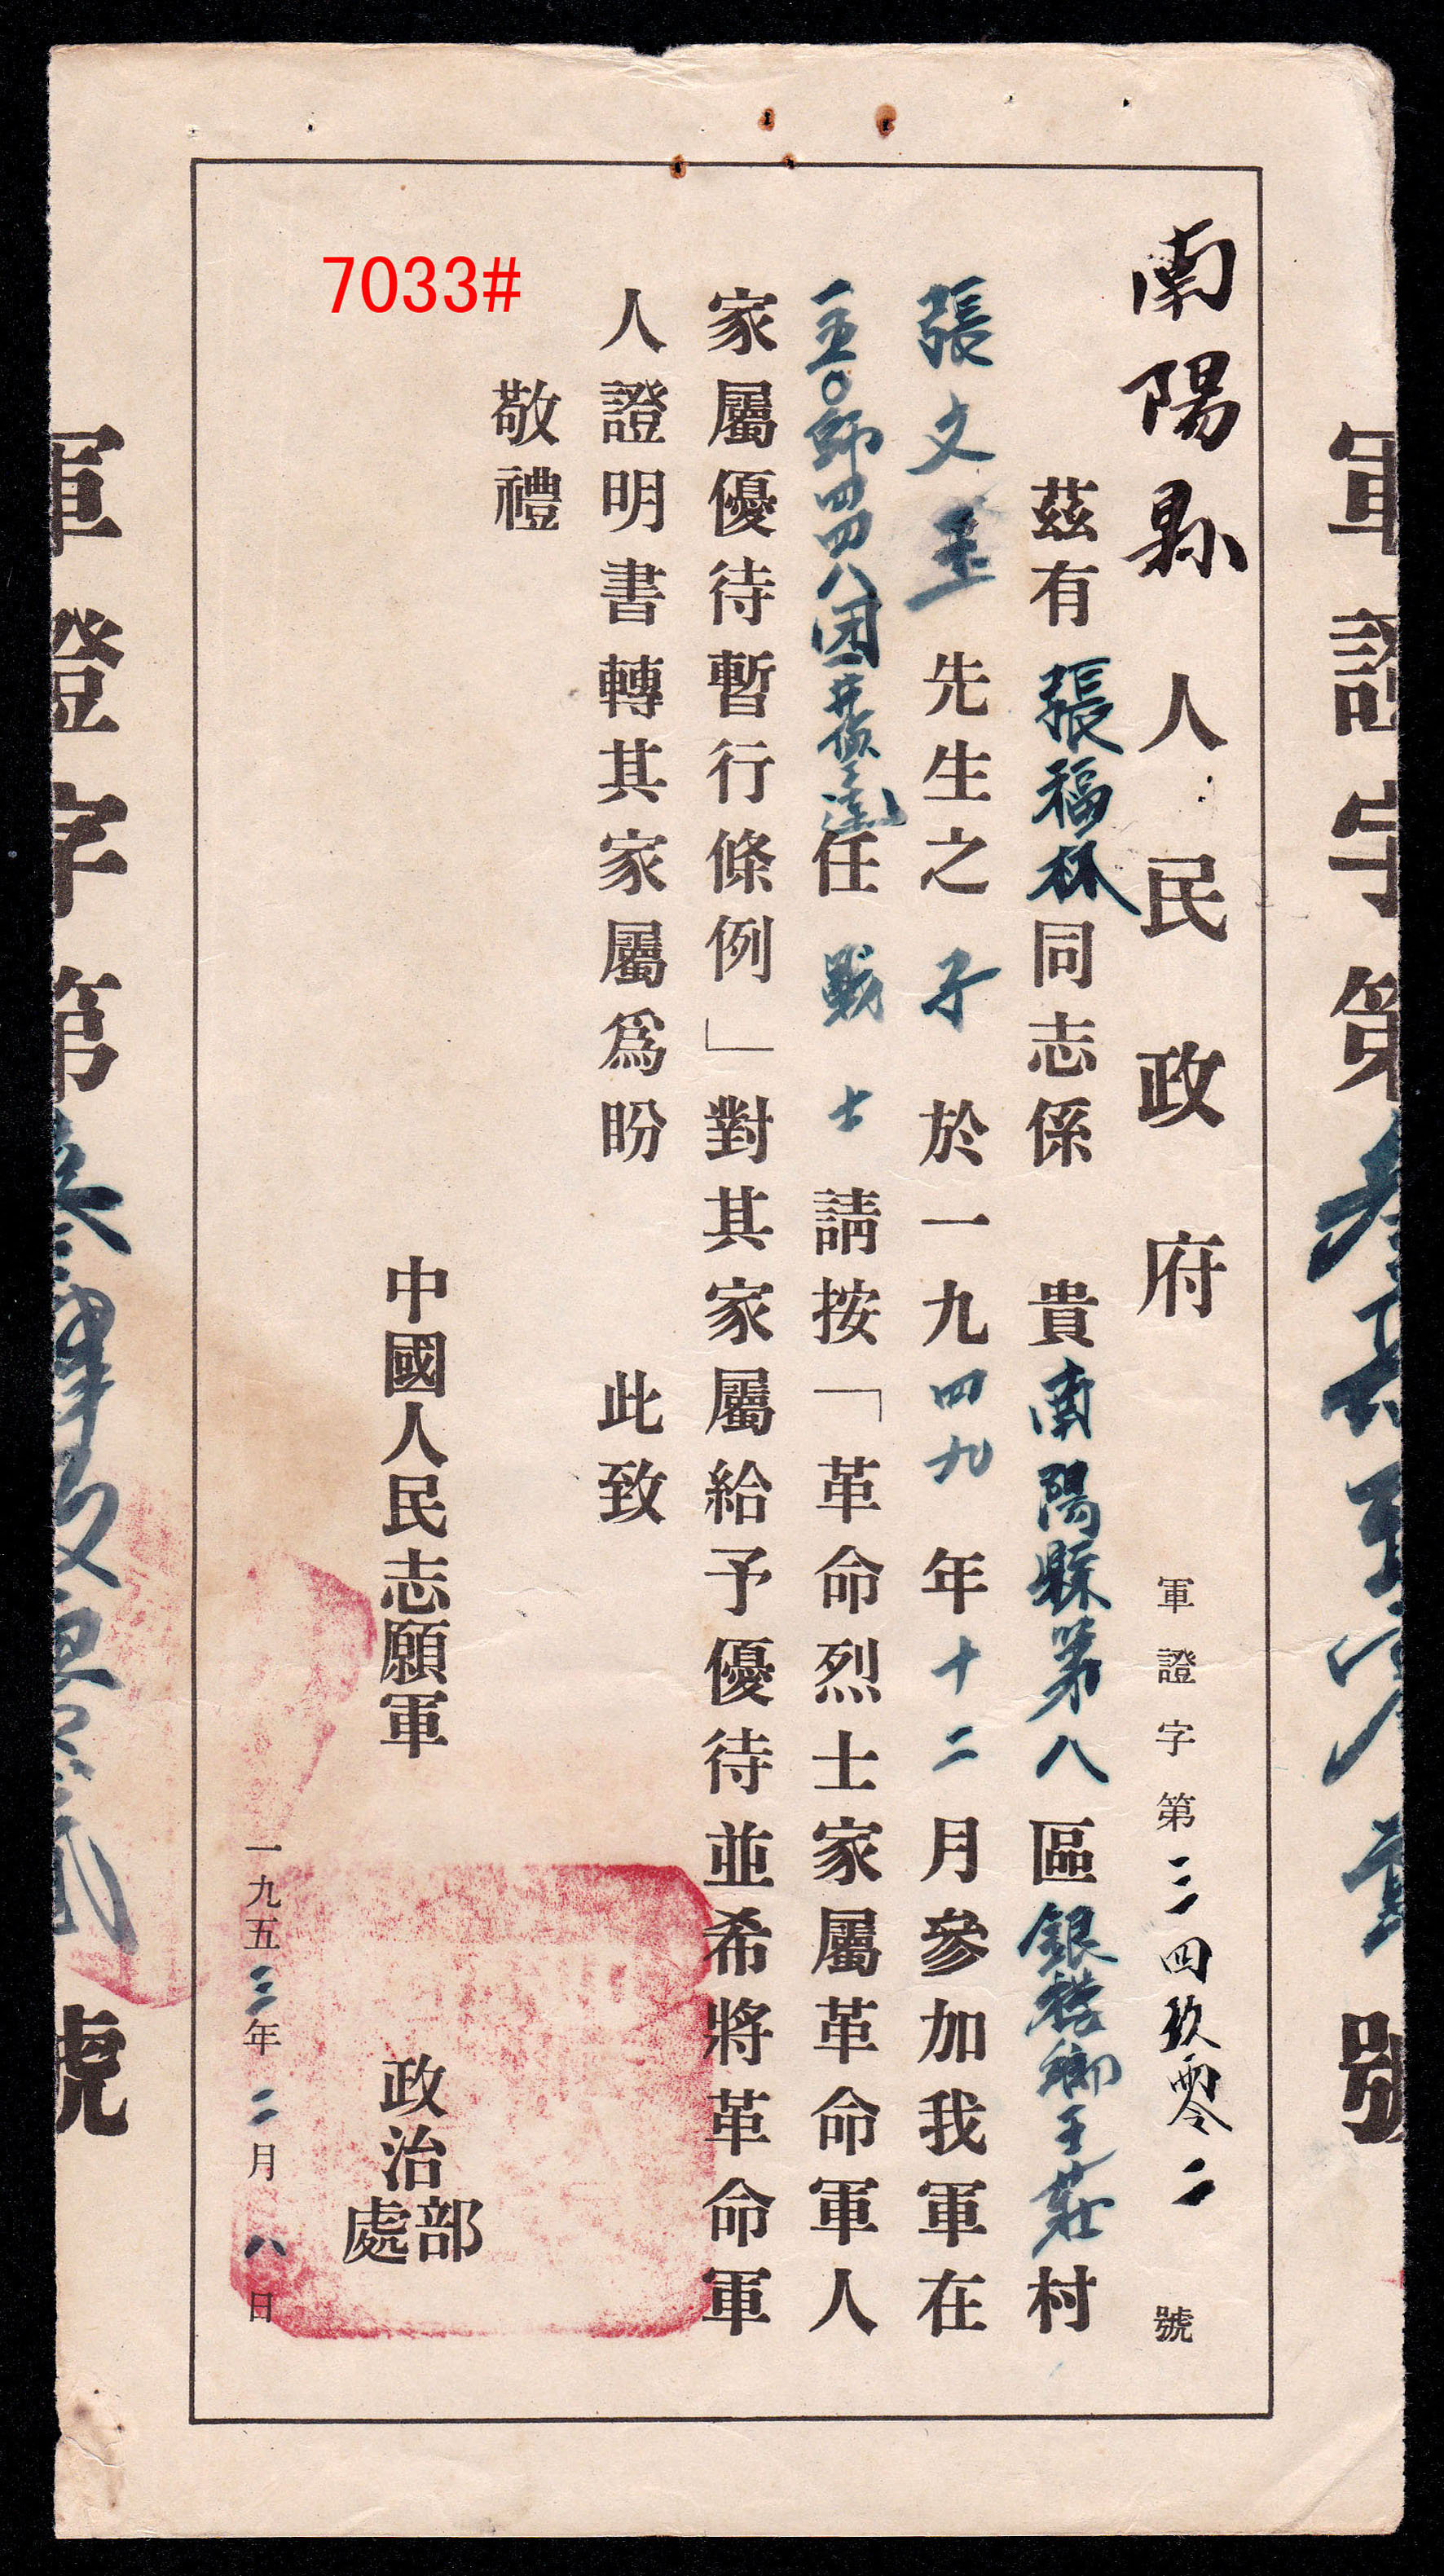 軍證字第
號
南陽縣人民政府
軍證字第三四玖零二號
茲有張福林同志係 貴南陽縣第八區銀 鄉王莊村
張文玉先生之子於一九四九年十二月參加我軍在
一五〇師四四八团 任戰士請按「革命烈士家屬革命軍人
家屬優待暫行條例」對其家屬給予優待並希將革命軍
人證明書轉其家屬爲盼 此致
敬禮
中國人民志願軍 政治部處
一九五三年二月八日
7033#
軍證字第
號